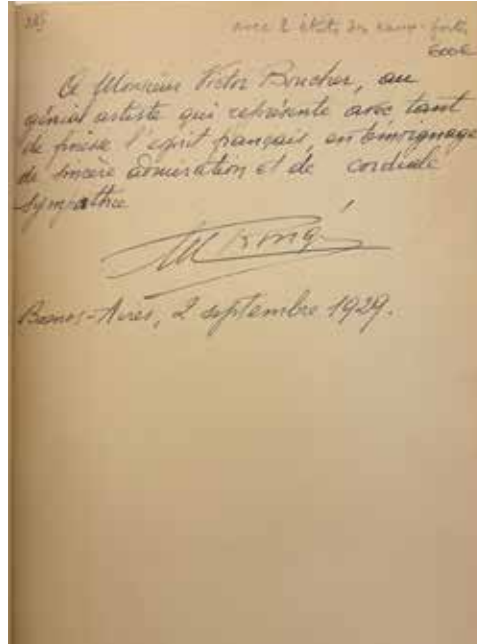 avec 2 états des eaux-fortes
600€
A Monsieur Victor Boucher, au
génial artiste qui représente avec tant
de finesse l'esprit français, en témoignage
de sincère admiration et de cordiale
sympathie
Buenos-Aires, 2 septembre 1929.